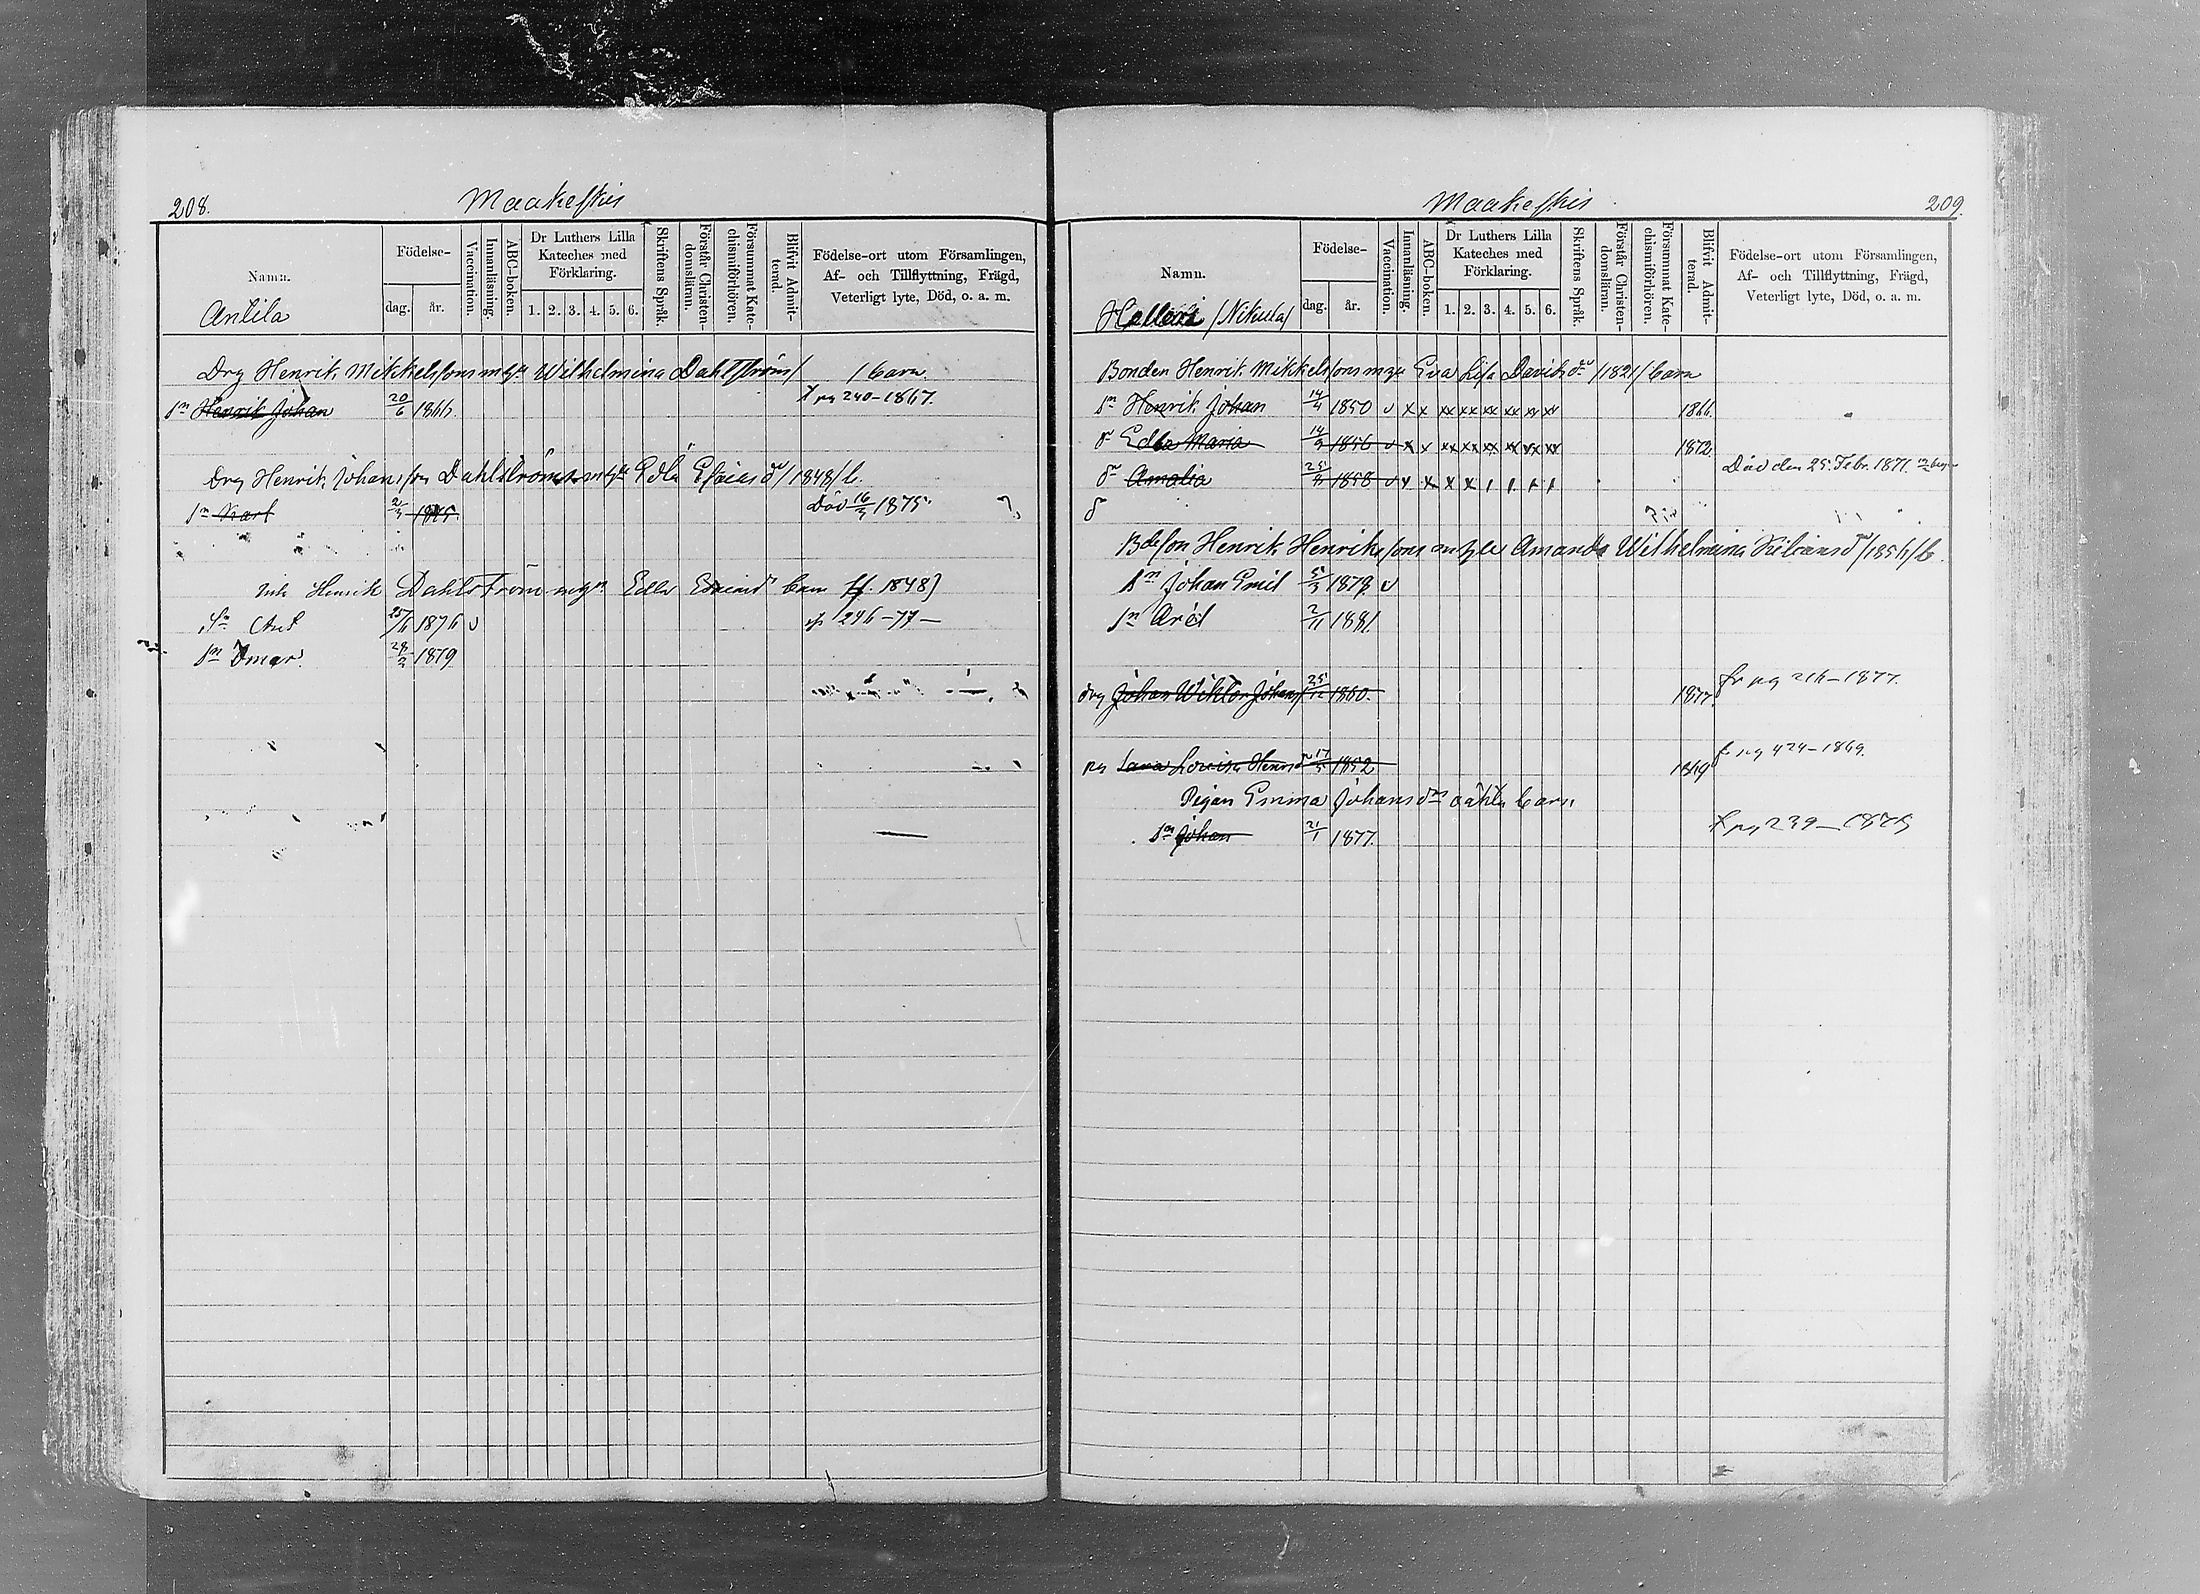 208.
Maakeskis
Namn.
Födelse-
dag.
år.
Vaccination.
Innanläsning.
ABC-boken.
Dr Luthers Lilla Kateches med Förklaring.
1. 2. 3. 4. 5. 6.
Skriftens Språk.
Förstår Christen-domsläran.
Försummat Kate-chismiförhören.
Blifvit Admit-terad.
Födelse-ort utom Församlingen,
Af- och Tillflyttning, Frägd,
Veterligt lyte, Död, o. a. m.
Antila
Drg Henrik Mikkelssons m hu Wilhelmina Dahlström/ 1 barn
sn Henrik Johan 20/6 1866. pg 240-1867.
Drg Henrik Johansson Dahlströms m hu Edla Esaias dr /1848/ b.
sn Karl 2/3 1875. Död 16/3 1875.
Henrik Dahlström Edla Esaiasd barn f. 1848)
Sn 25/6 1876 v 246-77-
sn 28/2 1879
Maakeskis
209.
Namn.
Födelse-
dag.
år.
Vaccination.
Innanläsning.
ABC-boken.
Dr Luthers Lilla Kateches med Förklaring.
1. 2. 3. 4. 5. 6.
Skriftens Språk.
Förstår Christen-domsläran.
Försummat Kate-chismiförhören.
Blifvit Admit-terad.
Födelse-ort utom Församlingen,
Af- och Tillflyttning, Frägd,
Veterligt lyte, Död, o. a. m.
/Nikula/
Bonden Henrik Mikkelssons m hu Eva Lisa Davidsdr /1821/ barn
sn Henrik Johan 14/4 1850 v x x xx xx xx xx xx xx 1866.
dr Edla Maria 14/9 1856 v x x xx xx xx xx xx xx 1872.
dr Amalia 25/8 1858 v x x x x Död den 25 Febr. 1871.
Bdeson Henrik Henrikssons Amanda Wilhelmina dr /1856/ b
sn Johan Emil 5/3 1879 v
sn Arvid 2/11 1881
drg Johan Wiktor Johanss 25/12 1860. 1877. fr pg 216-1877.
Lovisa Henrsdr 17/5 1852 1869 fr pg 424-1869.
Pigan Emma Johansdrs oäkta barn
sn Johan 21/1 1877. pg 239-1879